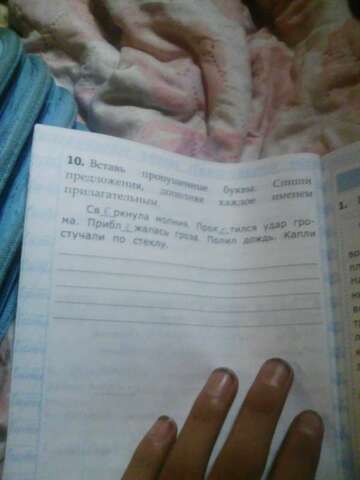 10. Вставь пропущенные буквы. Спиши
предложения, дополняя каждое именем
прилагательным.
Св е ркнула молния. Прок а тился удар гро-
ма. Прибл и жалась гроза. Полил дождь. Капли
стучали по стеклу.
1.